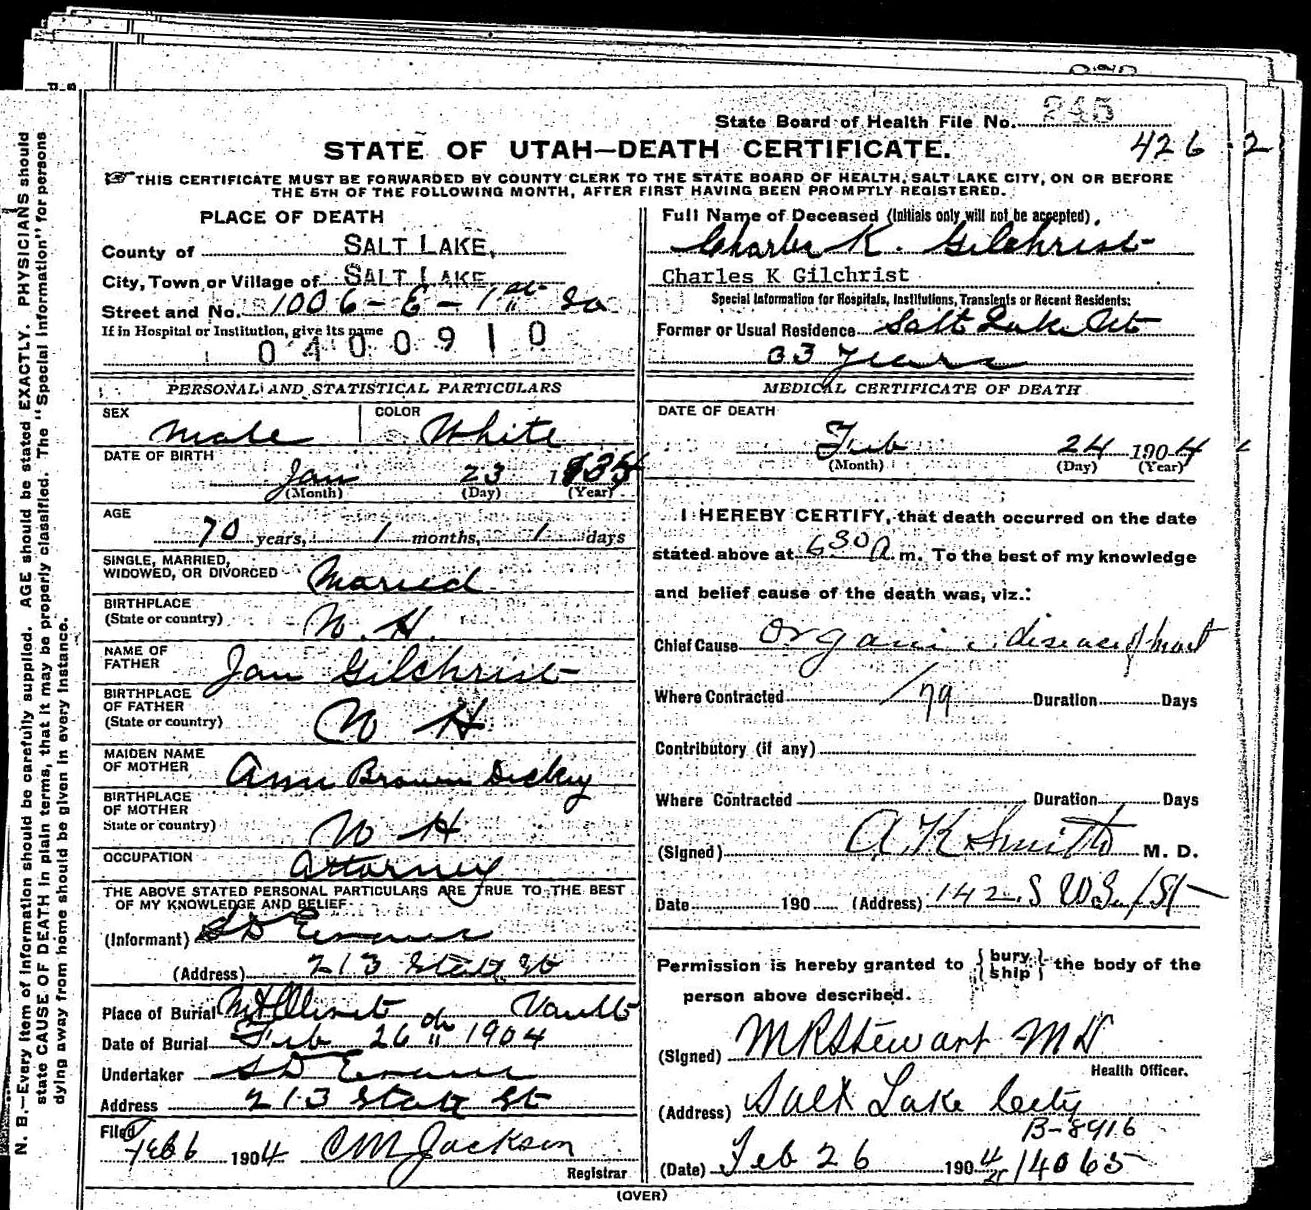 State Board of Health File No. 245
426
2
STATE OF UTAH—DEATH CERTIFICATE.
☞THIS CERTIFICATE MUST BE FORWARDED BY COUNTY CLERK TO THE STATE BOARD OF HEALTH, SALT LAKE CITY, ON OR BEFORE
THE 5TH OF THE FOLLOWING MONTH, AFTER FIRST HAVING BEEN PROMPTLY REGISTERED.
PLACE OF DEATH
County of SALT LAKE,
City, Town or Village of SALT LAKE
Street and No. 1006-E-1st So
If in Hospital or Institution, give its name
0400910
Full Name of Deceased (Initials only will not be accepted).
Charles K. Gilchrist
Charles K Gilchrist
Special Information for Hospitals, Institutions, Transients or Recent Residents:
Former or Usual Residence Salt Lake
33 years
PERSONAL AND STATISTICAL PARTICULARS
SEX Male
COLOR White
DATE OF BIRTH
Jan 23 1834
(Month) (Day) (Year)
AGE
70 years, 1 months, 1 days
SINGLE, MARRIED,
WIDOWED, OR DIVORCED Married
BIRTHPLACE
(State or country) N. H.
NAME OF
FATHER Jan Gilchrist
BIRTHPLACE
OF FATHER
(State or country) N H
MAIDEN NAME
OF MOTHER Ann Brown Dickey
BIRTHPLACE
OF MOTHER
State or country) N H
OCCUPATION Attorney
THE ABOVE STATED PERSONAL PARTICULARS ARE TRUE TO THE BEST
OF MY KNOWLEDGE AND BELIEF
(Informant) S D Evans
(Address) 213 State St
Place of Burial Mt Olivet Vault
Date of Burial Feb 26th 1904
Undertaker S D Evans
Address 213 State St
Filed Feb 6 1904 C M Jackson
Registrar
MEDICAL CERTIFICATE OF DEATH
DATE OF DEATH
Feb 24 1904
(Month) (Day) (Year)
I HEREBY CERTIFY, that death occurred on the date
stated above at 630 A m. To the best of my knowledge
and belief cause of the death was, viz.:
Chief Cause Organic disease of heart
Where Contracted 179 Duration Days
Contributory (if any)
Where Contracted Duration Days
(Signed) A K Smith M. D.
Date 190 (Address) 142 S
Permission is hereby granted to {bury ship} the body of the
person above described.
(Signed) M R Stewart M D
Health Officer.
(Address) Salt Lake City
B-8916
(Date) Feb 26 1904 14065
(OVER)
N. B.—Every item of information should be carefully supplied. AGE should be stated EXACTLY. PHYSICIANS should
state CAUSE OF DEATH in plain terms, that it may be properly classified. The "Special Information" for persons
dying away from home should be given in every instance.